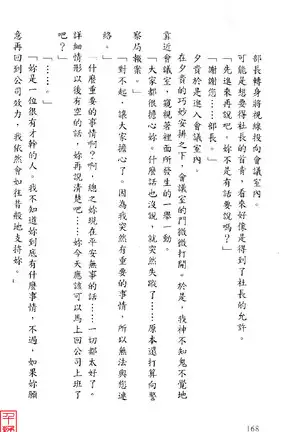 部長轉身將視線投向會議室內。
可能是想要得社長的首肯，看來好像是得到了社長的允許。
「先進來再說吧，妳不是有話要說嗎？」
「謝謝您……部長。」
夕貴於是進入會議室內。
在夕貴的巧妙安排之下，會議室的門微微打開。於是，我神不知鬼不覺地
靠近會議室，窺視英裡面所發生的一舉一動。
「大家都很擔心妳。什麼話也沒說，就突然失蹤了……原本還打算向警
察局報案。」
「對不起，讓大家擔心了。因為我突然有重要的事情，所以無法與您連
「……什麼重要的事情啊？啊，總之妳現在平安無事的話……一切都太好了。
詳細情形以後有空的話，妳再說清楚吧……妳今天應該可以馬上回公司上班了
吧？」
「妳是一位很有才幹的人。我不知道妳到底有什麼事情，不過，如果妳願
意再回到公司效力，我依然會如往昔般地支持妳。」
168